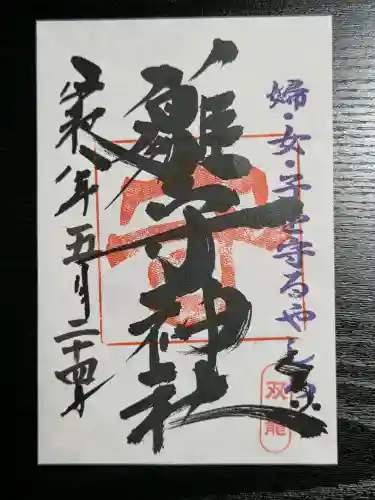 婦・女・子を守るやしろ
雛子神社
令和八年五月二十四日
双龍